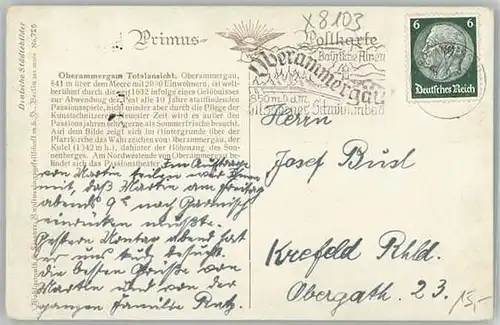 x 8103
Primus-
Postkarte
6 6
Deutsches Reich
Bayrische Alpen
Oberammergau
850 m ü. m.
Deutsche Städtebilder
Oberammergau Totalansicht. Oberammergau,
841 m über dem Meere mit 2000 Einwohnern, ist welt-
berühmt durch das seit 1632 infolge eines Gelöbnisses
zur Abwendung der Pest alle 10 Jahre stattfindenden
Passionsspiele, nicht minder aber durch die Pflege der
Kunstschnitzerei. In neuester Zeit wird es außer den
Passionsjahren sehr gerne als Sommerfrische besucht.
Auf dem Bilde zeigt sich im Hintergrunde über der
Pfarrkirche das Wahrzeichen von Oberammergau, der
Kofel (1342 m h.), dahinter der Höhenzug des Son-
nenberges. Am Nordwestende von Oberammergau be-
findet sich das Passionstheater.
Im Auftrage
von Martin teilen wir Ihnen
mit, daß Martin am Freitag
abends 9h nach Garmisch
einrücken mußte.
Gestern Montag abend hat
er uns kurz besucht.
Die besten Grüße von
Martin und von der
ganzen Familie Ratz.
Herrn
Josef Busl
Krefeld Rhld.
Obergath. 23.
13,-